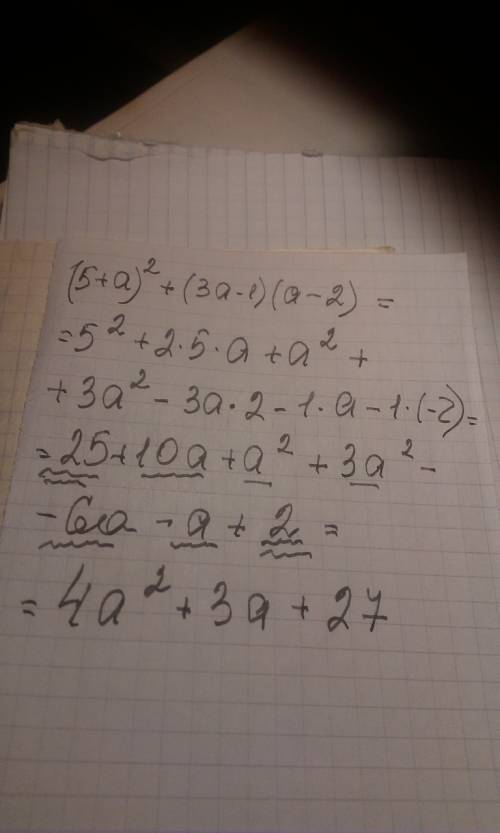 (5+a)² + (3a-1)(a-2) =
= 5² + 2·5·a + a² +
+ 3a² - 3a·2 - 1·a - 1·(-2) =
= 25 + 10a + a² + 3a² -
- 6a - a + 2 =
= 4a² + 3a + 27